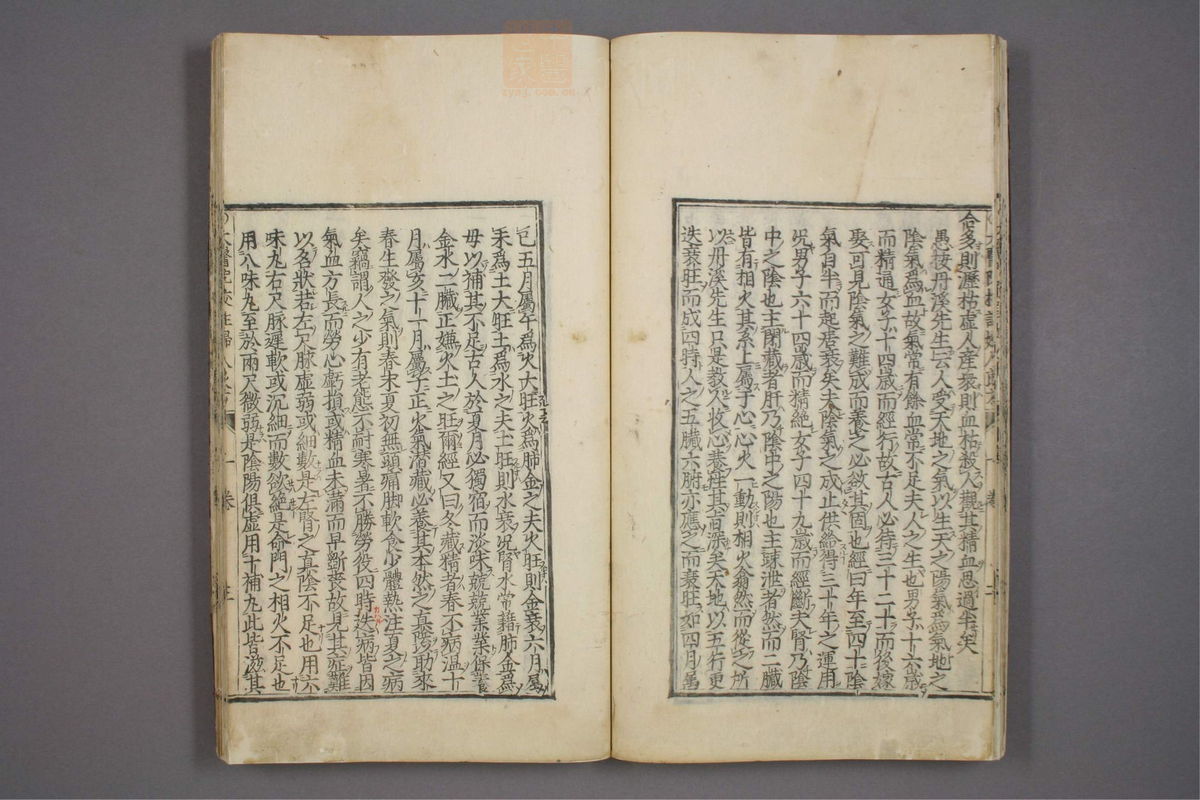 合多則瀝枯虛人産衆則血枯殺人觀其精血思過半矣
愚按丹溪先生云人受天地之氣以生天之陽氣爲氣地之
陰氣爲血故氣常有餘血常不足夫人之生也男子十六歲
而精通女子十四歲而經行故古人必待三十二十而後嫁
娶可見陰氣之難成而養之必欲其固也經曰年至四十陰
氣自半而起居衰矣夫陰氣之成止供給得三十年之運用
况男子六十四歲而精絶女子四十九歲而經斷夫腎乃陰
中之陰也主閉藏者肝乃陰中之陽也主疎泄者然而二臓
皆有相火其系上屬于心心火一動則相火翕然而從之所
以丹溪先生只是教人收心養性其旨深矣天地以五行更
迭衰旺而成四時人之五臓六腑亦應之而衰旺如四月屬
巳五月屬午爲火大旺火爲肺金之夫火旺則金衰六月屬
未爲土大旺土爲水之夫土旺則水衰况腎水常藉肺金爲
母以補其不足古人於夏月必獨宿而淡味兢兢業業保養
金水二臓正嫌火土之旺爾經又曰冬藏精者春不病温十
月屬亥十一月屬子正火氣潜藏必養其本然之真陰助來
春生發之氣則春末夏初無頭痛脚軟食少體熱注夏之病
矣竊謂人之少有老態不耐寒暑不勝勞役四時迭病皆因
氣血方長而勞心虧損或精血未滿而早斲喪故見其症難
以名狀若左尺脉虛弱或細數是左腎之真陰不足也用六
味丸右尺脉遲軟或沉細而數欲絶是命門之相火不足也
用八味丸至於兩尺微弱是陰陽俱虛用十補丸此皆滋其